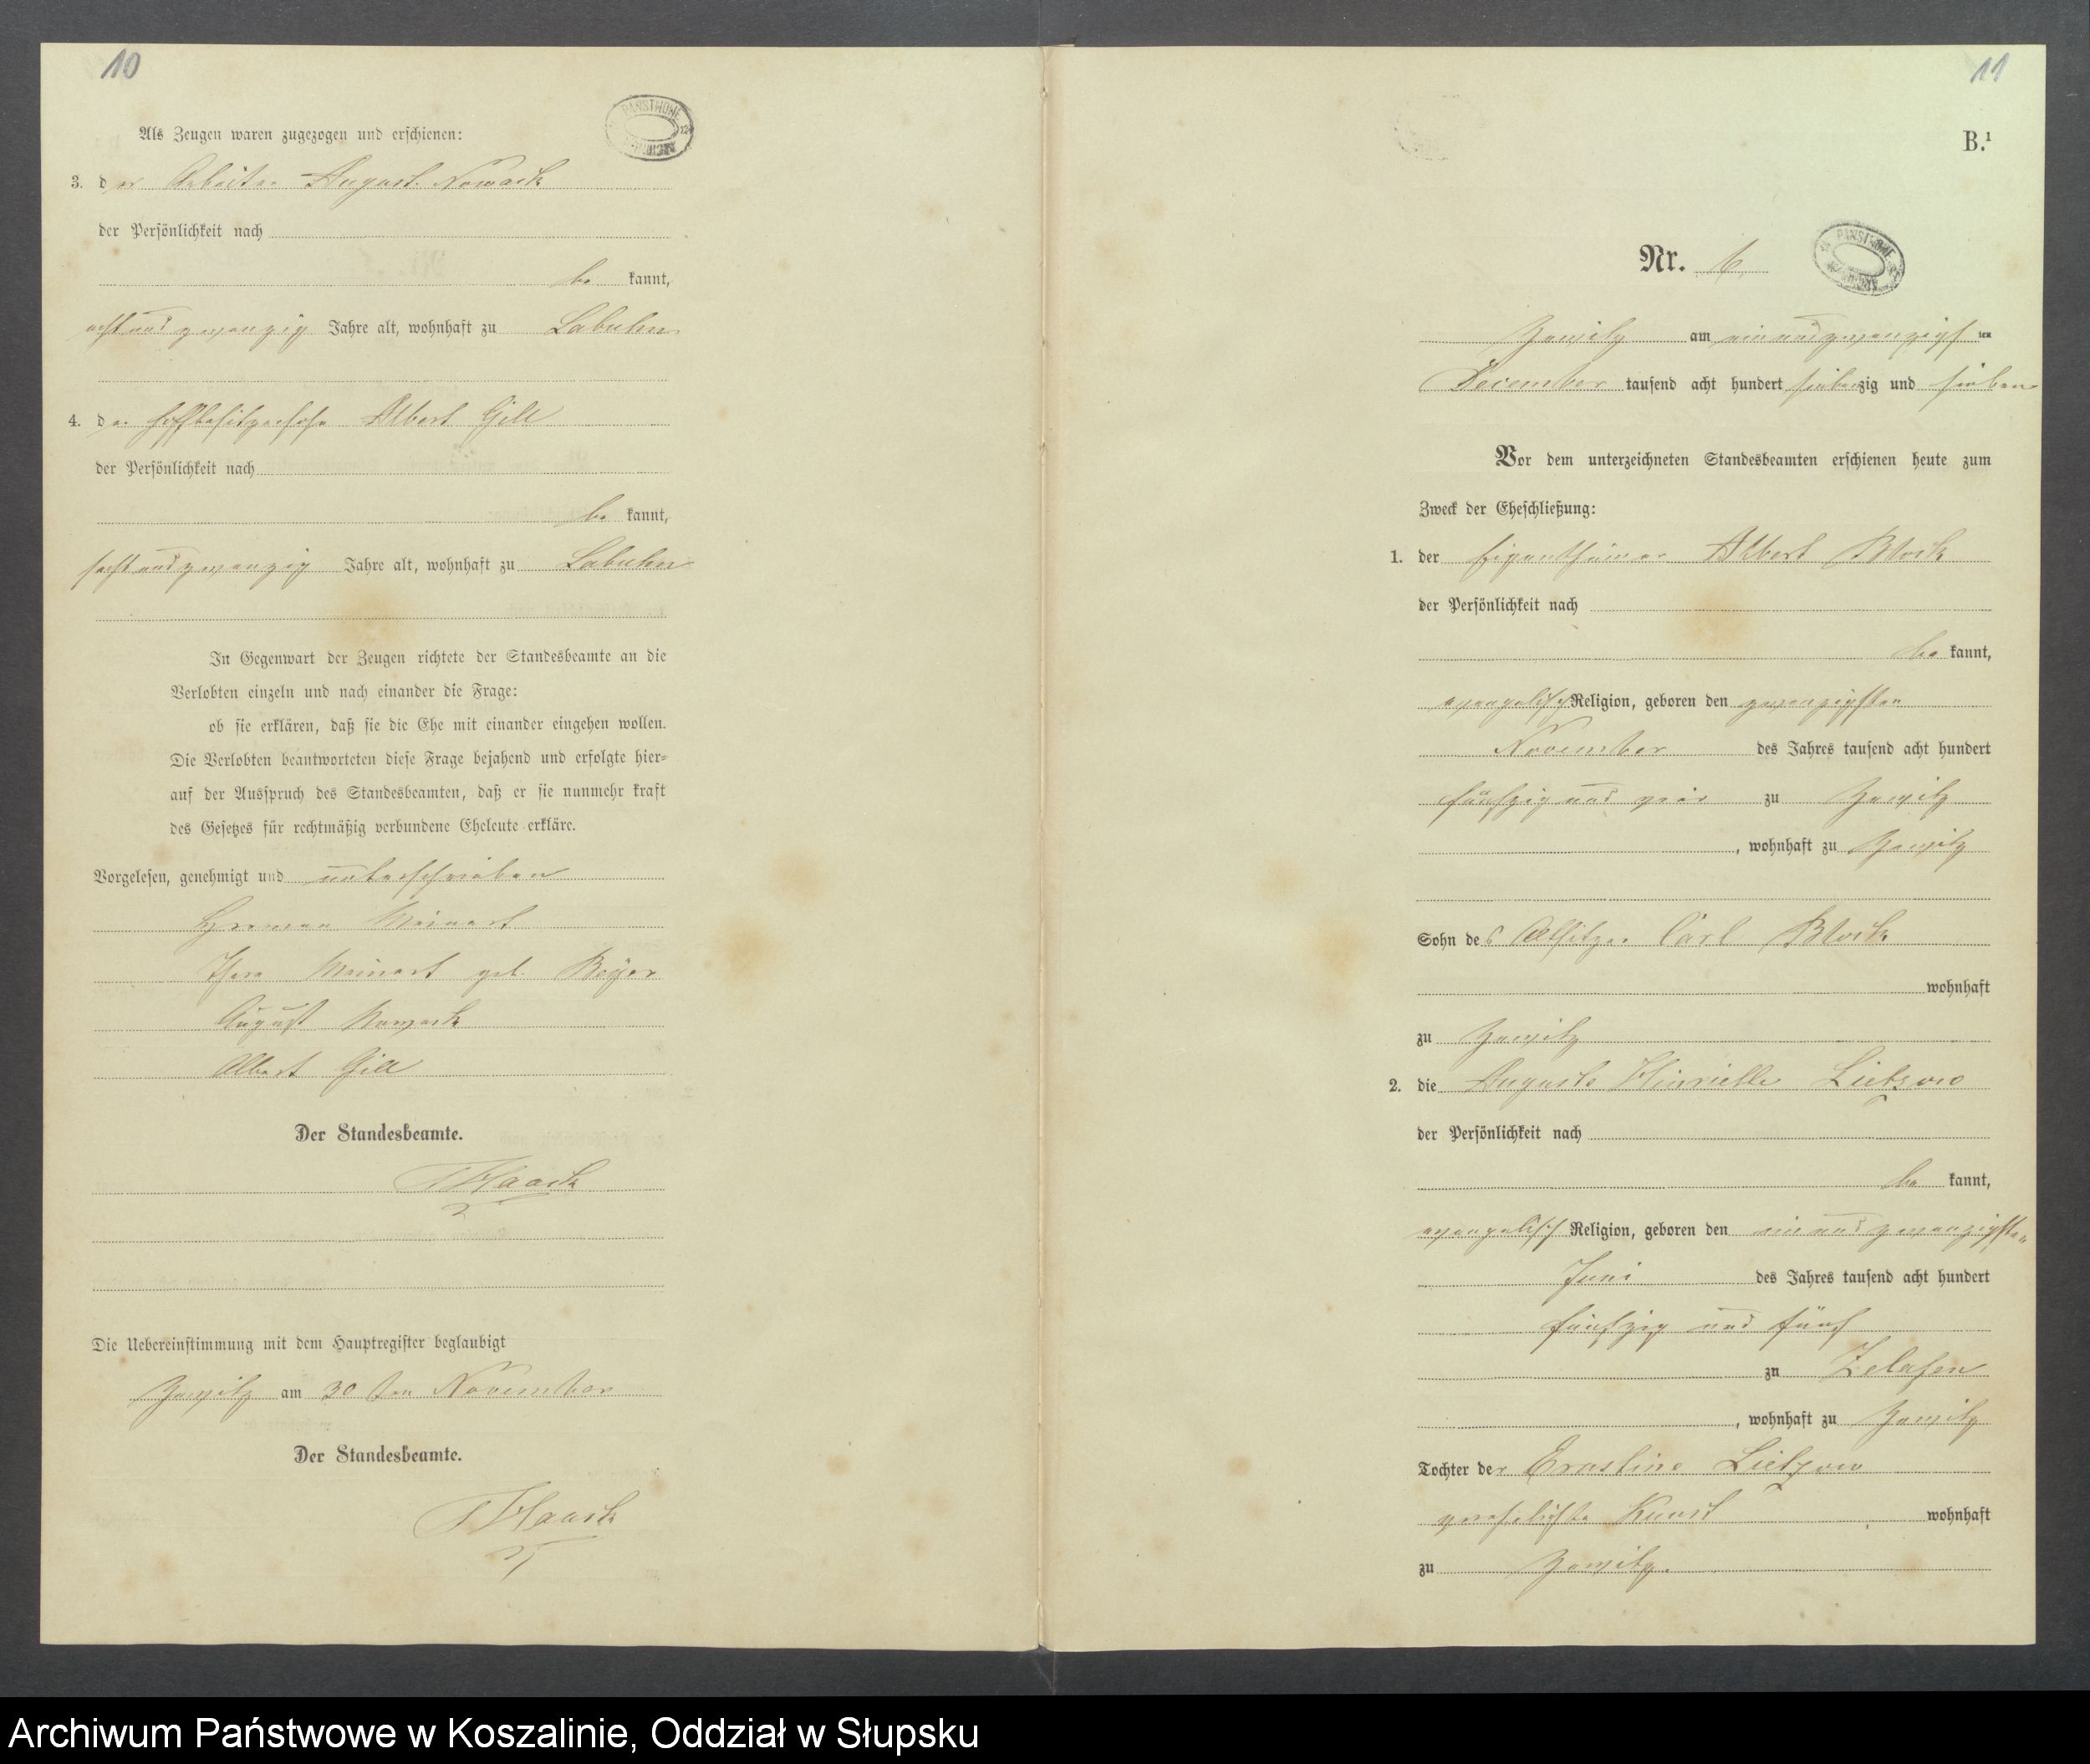 10
Als Zeugen waren zugezogen und erschienen:
3. der Arbeiter August Nowack
der Persönlichkeit nach
be kannt,
acht und zwanzig Jahre alt, wohnhaft zu Labuhn
4. der Hofbesitzersohn Albert Gill
der Persönlichkeit nach
be kannt,
sechs und zwanzig Jahre alt, wohnhaft zu Labuhn
In Gegenwart der Zeugen richtete der Standesbeamte an die
Verlobten einzeln und nach einander die Frage:
ob sie erklären, daß sie die Ehe mit einander eingehen wollen.
Die Verlobten beantworteten diese Frage bejahend und erfolgte hier-
auf der Ausspruch des Standesbeamten, daß er sie nunmehr kraft
des Gesetzes für rechtmäßig verbundene Eheleute erkläre.
Vorgelesen, genehmigt und unterschrieben
Meinart
Meinart geb. Beyer
August Nowack
Albert Gill
Der Standesbeamte.
Haack
Die Uebereinstimmung mit dem Hauptregister beglaubigt
Zewitz am 30 ten November
Der Standesbeamte.
Haack
11
B.¹
Nr. 6
Zewitz am ein und zwanzigs ten
December tausend acht hundert siebenzig und sieben
Vor dem unterzeichneten Standesbeamten erschienen heute zum
Zweck der Eheschließung:
1. der Eigenthümer Albert Block
der Persönlichkeit nach
be kannt,
evangelisch Religion, geboren den zwanzigsten
November des Jahres tausend acht hundert
fünfzig und vier zu Zewitz
, wohnhaft zu Zewitz
Sohn des Altsitzer Carl Block
wohnhaft
zu Zewitz
2. die Auguste Hinriette Lietzow
der Persönlichkeit nach
be kannt,
evangelisch Religion, geboren den ein und zwanzigsten
Juni des Jahres tausend acht hundert
fünfzig und fünf
zu Zelasen
, wohnhaft zu Zewitz
Tochter der Ernstine Lietzow
verehelichte Kunst wohnhaft
zu Zewitz.
Archiwum Państwowe w Koszalinie, Oddział w Słupsku